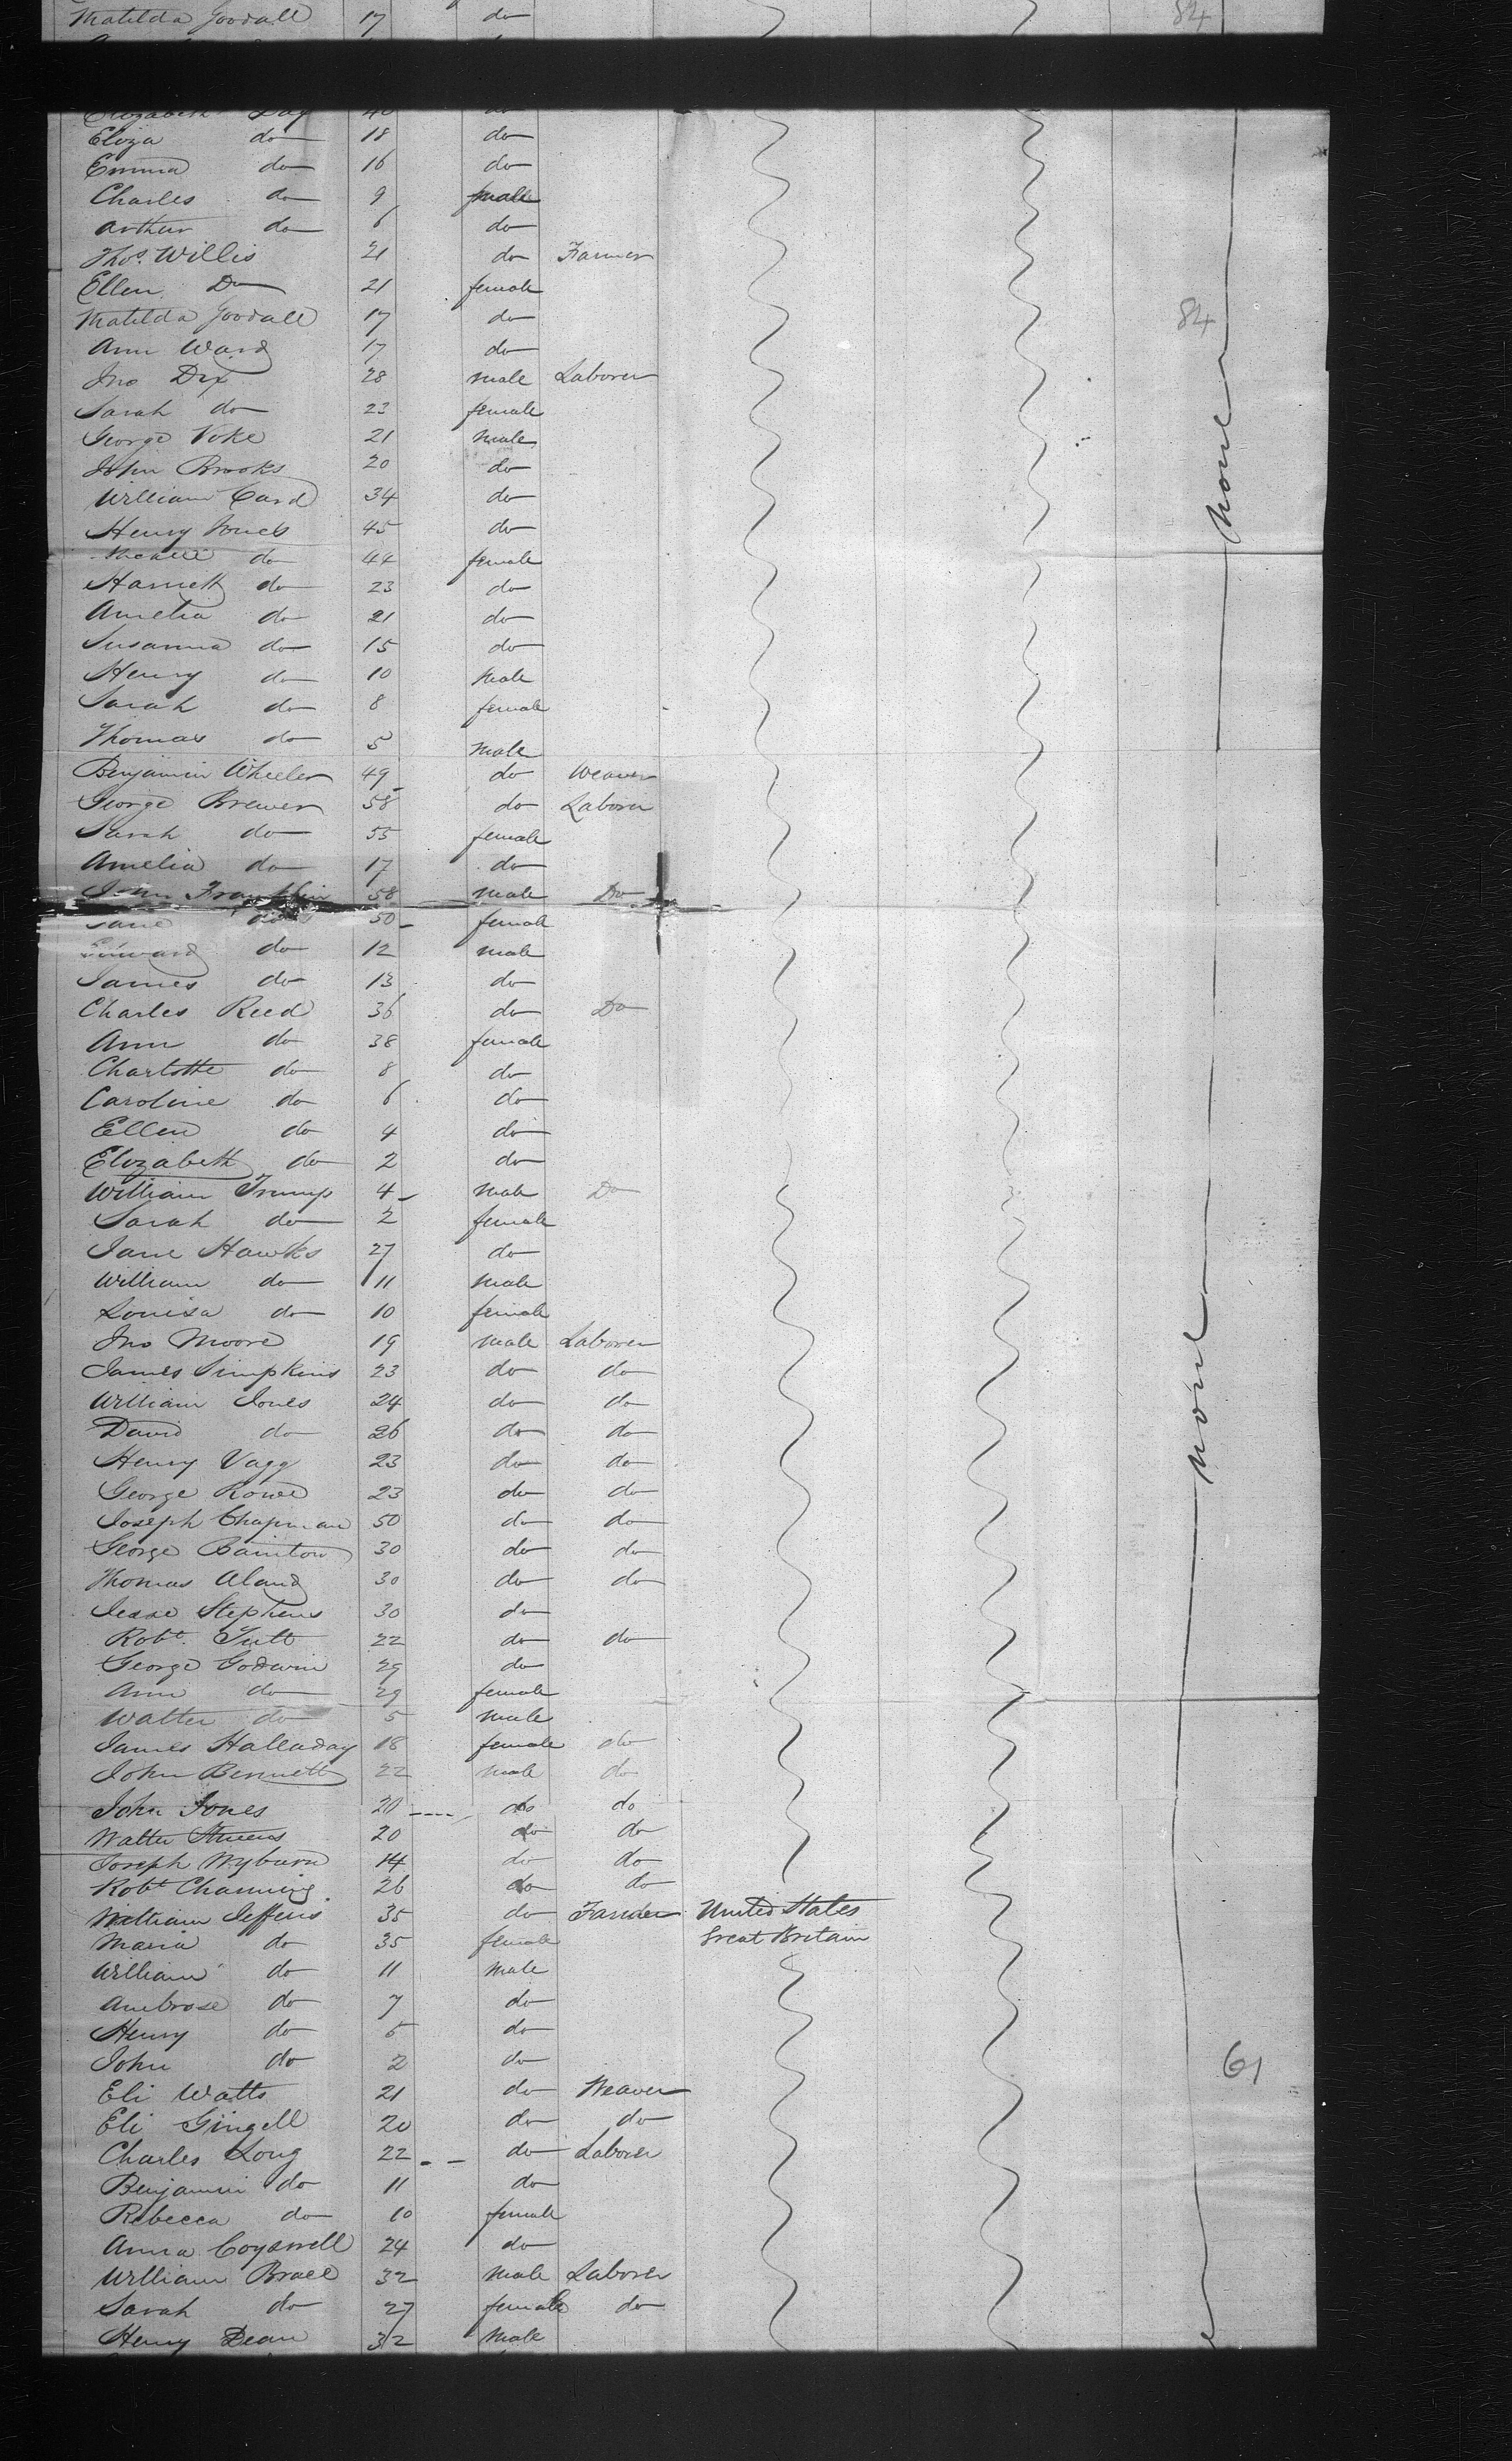 Matilda Goodall 17 do 84
Elizabeth Day 40 do
Eliza do 18 do
Emma do 16 do
Charles do 9 male
Arthur do 6 do
Thos. Willis 21 do Farmer
Ellen Do 21 female
Matilda Goodall 17 do 84
Ann Ward 17 do
Jno Dix 28 male Laborer
Sarah do 23 female
George Voke 21 male
John Brooks 20 do
William Card 34 do
none
Henry Jones 45 do
do 44 female
Harriett do 23 do
Amelia do 21 do
Susanna do 15 do
Henry do 10 male
Sarah do 8 female
Thomas do 5 male
Benjamin Wheeler 49 do Weaver
George Brewer 58 do Laborer
Sarah do 55 female
Amelia do 17 do
John Franklin 58 male Do
Jane do 50 female
Edward do 12 male
James do 13 do
Charles Reed 36 do Do
Ann do 38 female
Charlotte do 8 do
Caroline do 6 do
Ellen do 4 do
Elizabeth do 2 do
William Trump 4 male Do
Sarah do 2 female
Jane Hawks 27 do
William do 11 male
Louisa do 10 female
Jno Moore 19 male Laborer
James Simpkins 23 do do
William Jones 24 do do
David do 26 do do
none
Henry Vagg 23 do do
George Rowe 23 do do
Joseph Chapman 50 do do
George Bainton 30 do do
Thomas Aland 30 do do
Jesse Stephens 30 do
Robt. Tutt 22 do do
George Godwin 29 do
Ann do 29 female
Walter do 5 male
James Halladay 18 female do
John Bennett 22 male do
John Jones 20 do do
Walter Stevens 20 do do
Joseph Wyburn 14 do do
Robt Channing 26 do do
William Jefferis 35 do Farmer United States
Maria do 35 female Great Britain
William do 11 male
Ambrose do 7 do
Henry do 5 do
John do 2 do
61
Eli Watts 21 do Weaver
Eli Gingell 20 do do
Charles Long 22 do Laborer
Benjamin do 11 do
Rebecca do 10 female
Anna Coggswell 24 do
William Brace 32 male Laborer
Sarah do 27 female do
Henry Dean 32 male